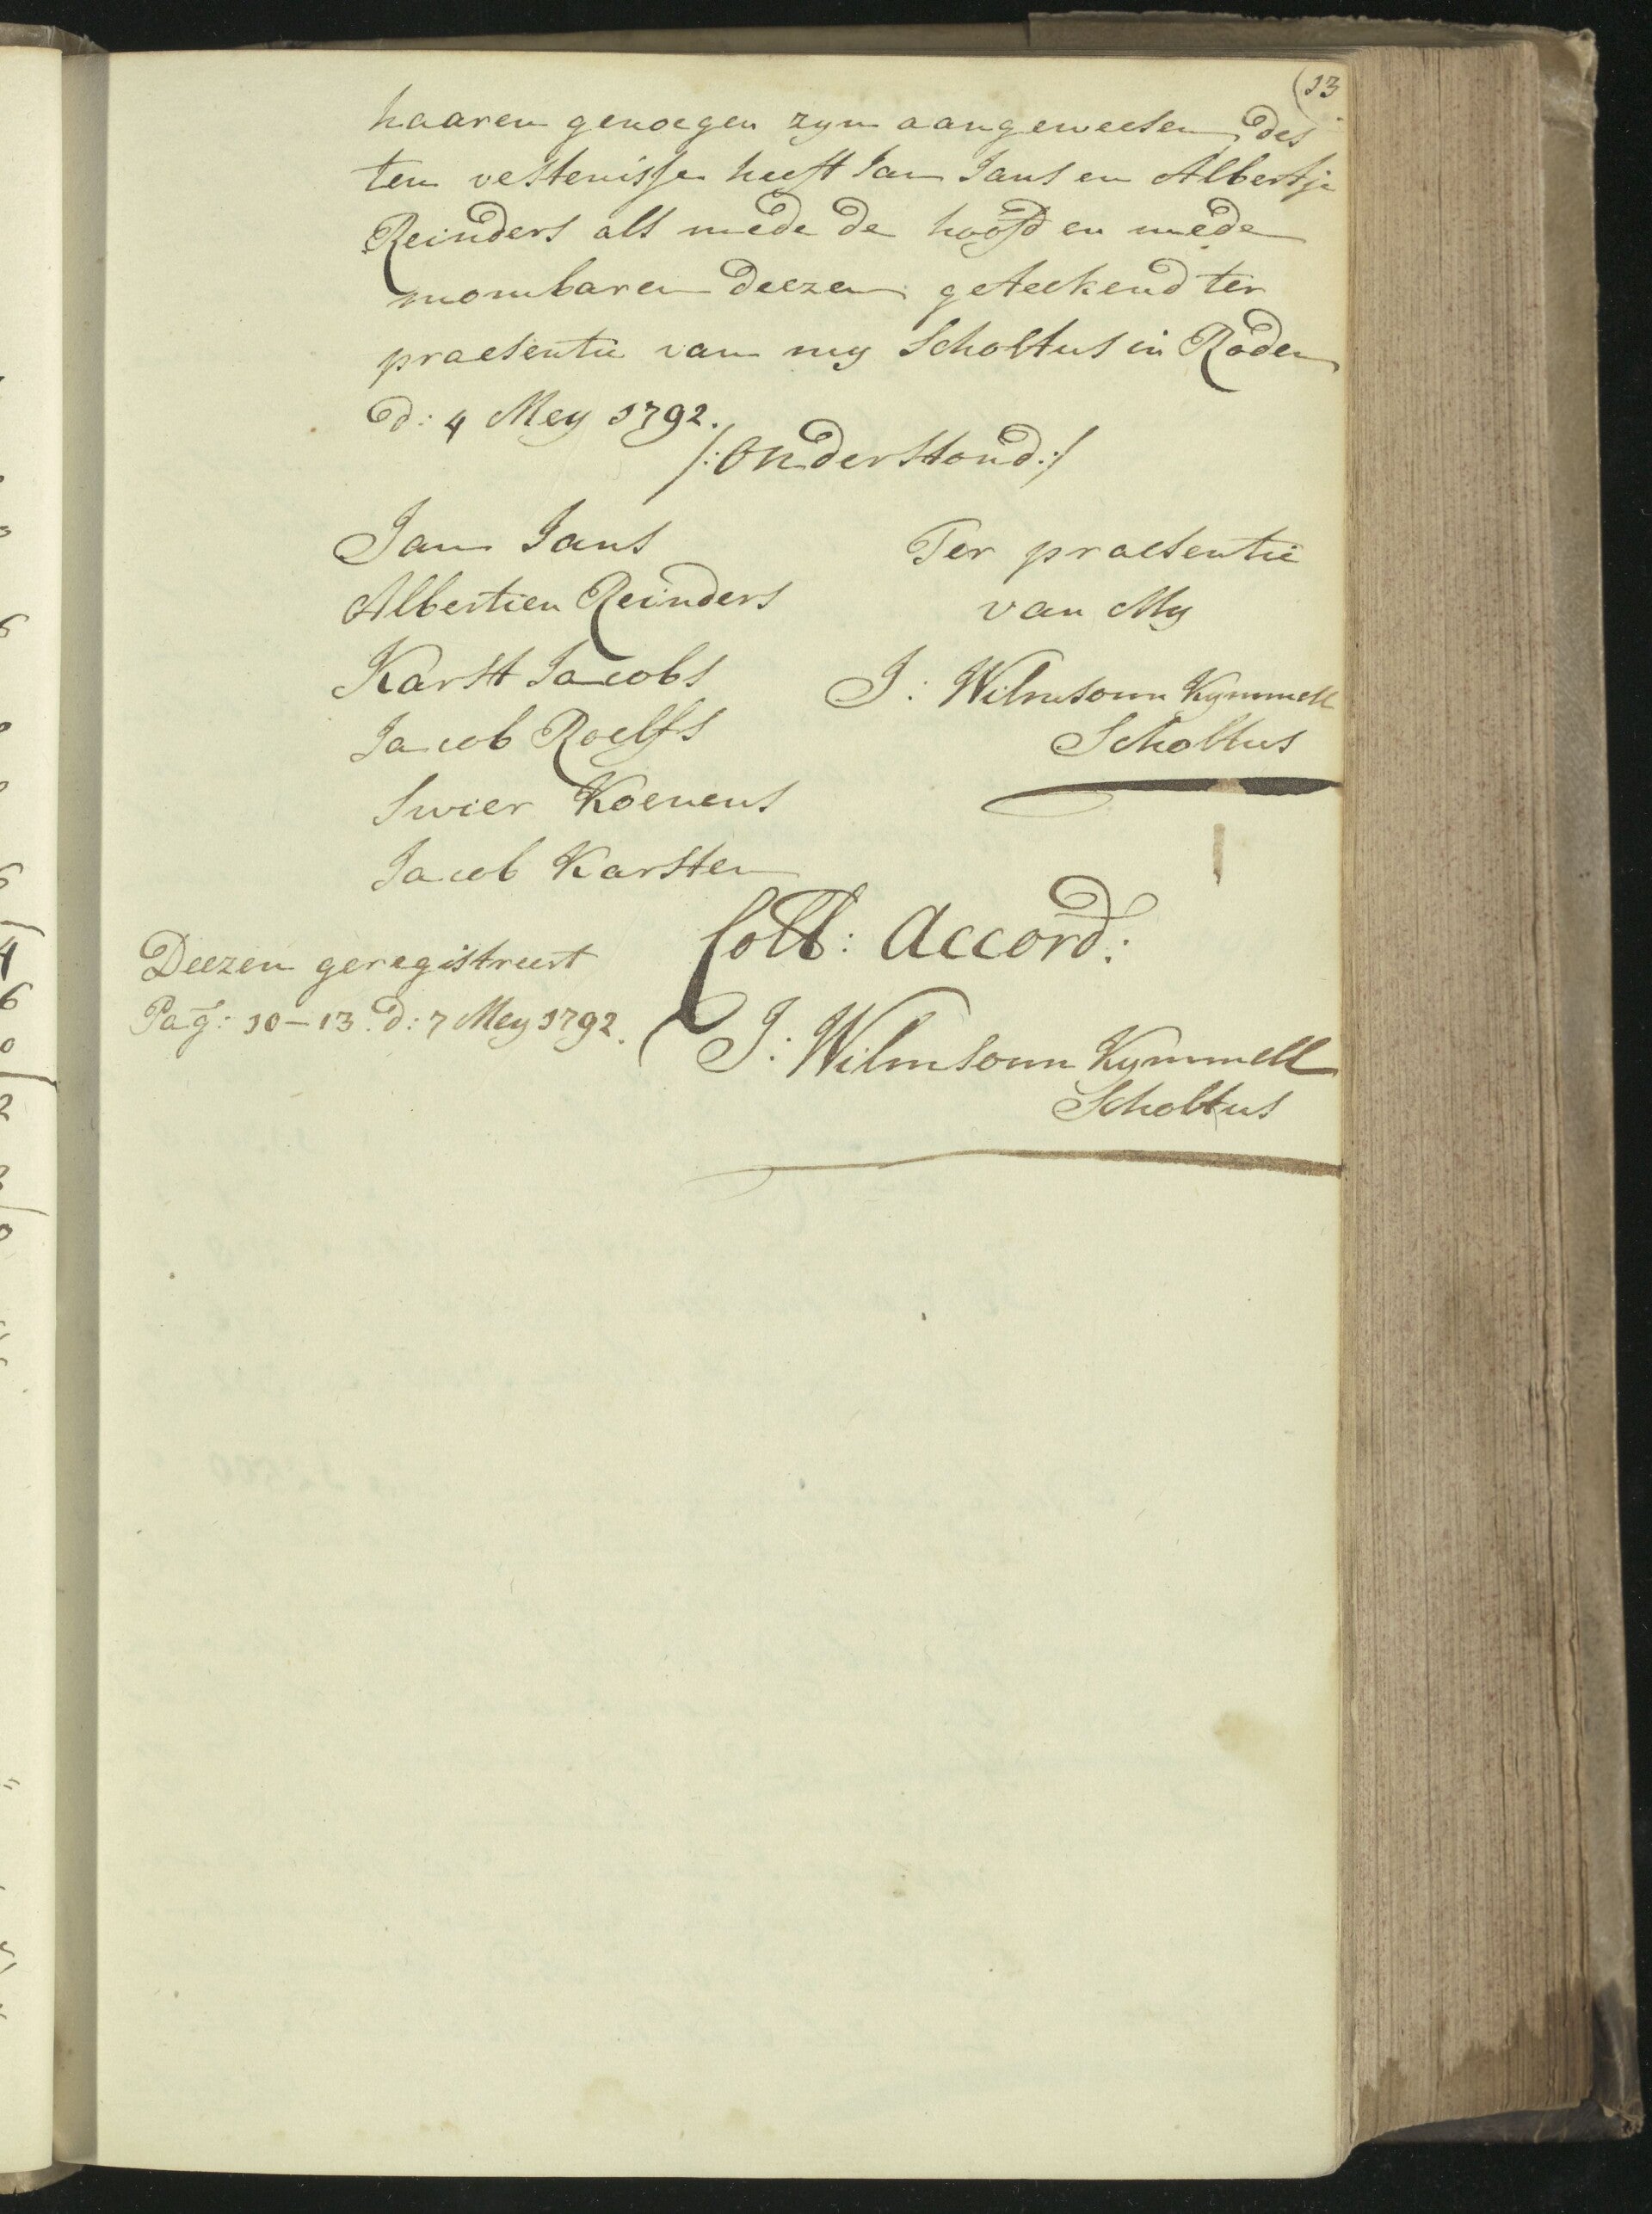 (13
haaren genoegen zyn aangeweesen, des
ten vestenisse heeft Jan Jans en Albertje
Reinders als mede de hoofd en mede
mombaren deezen geteekend ter
praesentie van my Scholtus in Roden
d: 4 Mey 1792.
/:Onderstond:/
Jan Jans
Albertien Reinders
Karst Jacobs
Jacob Roelfs
Swier Koenens
Jacob Karsten
Ter praesentie
van My
J: Wilmsonn Kymmell
Scholtus
Coll: Accord:
J: Wilmsonn Kymmell
Scholtus
Deezen geregistreert
Pag: 10-13. d: 7 Mey 1792.